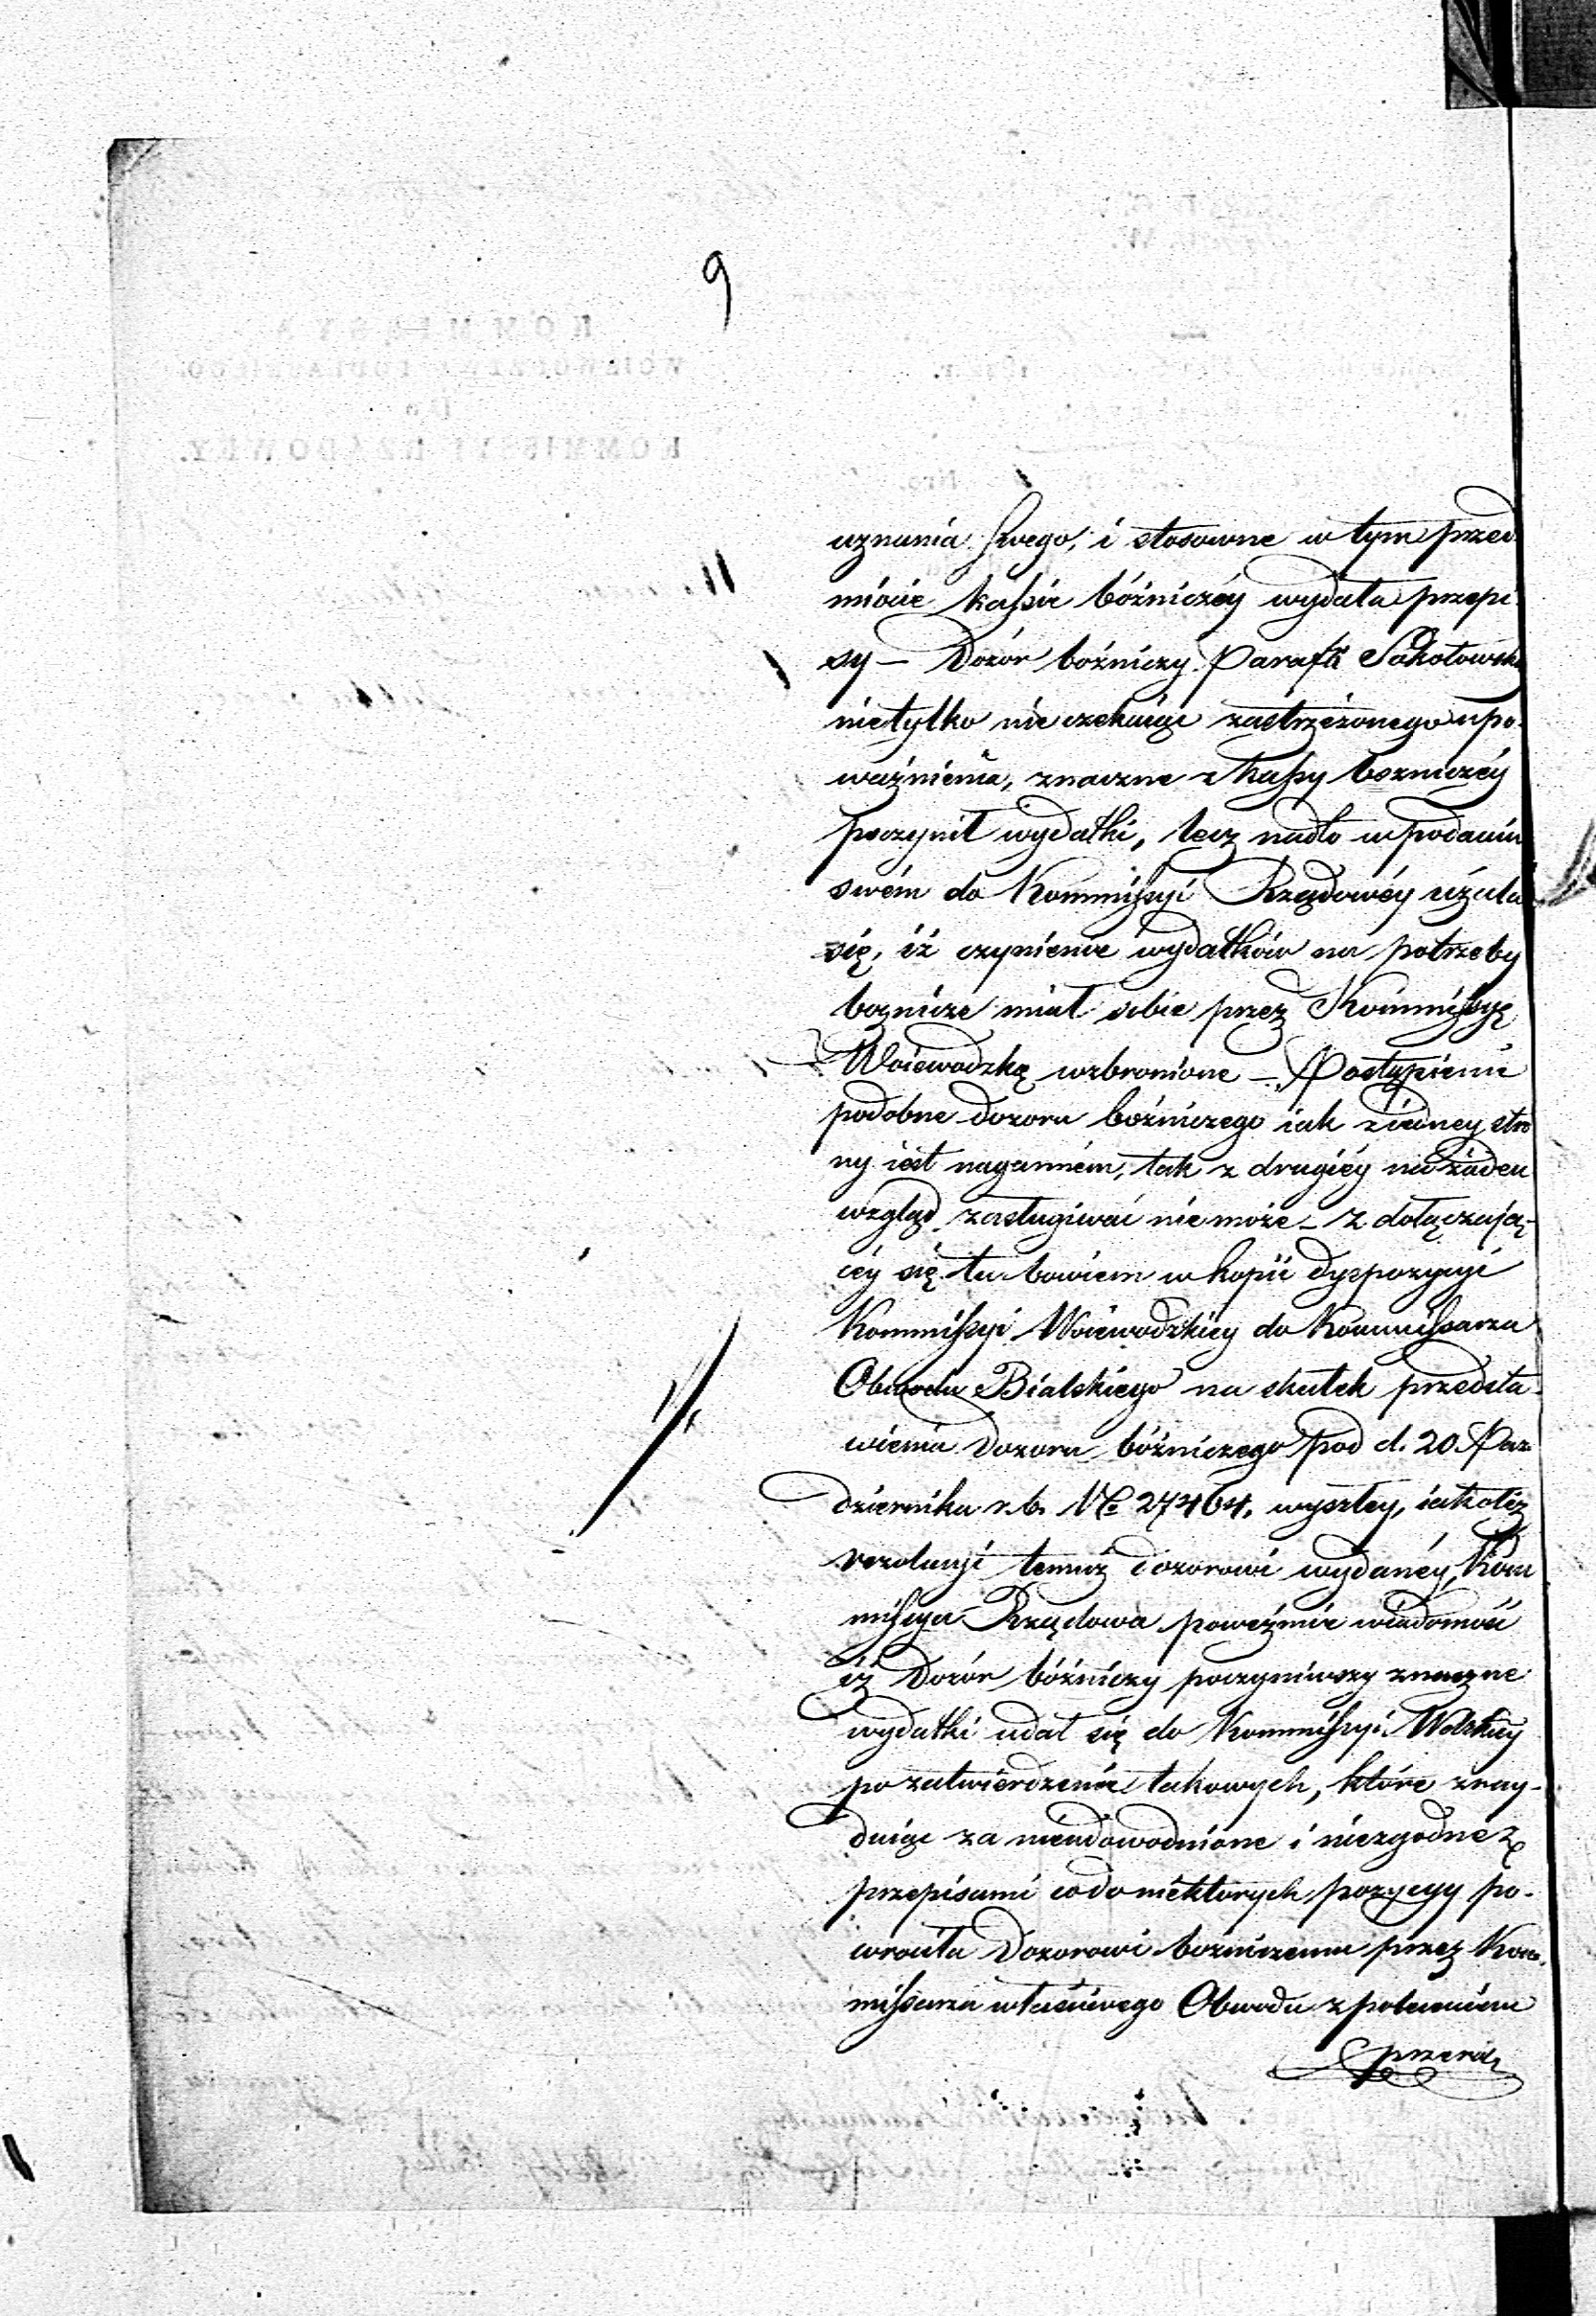 9
uznania swego, i stosowne w tym przed
miocie kassie bóźniczéy wydała przepi
sy — Dozór boźniczy Parafii Sokołowski
nietylko nie czekaiąc zastrzeżonego upo-
ważnienia, znaczne z kassy bozniczéy
poczynił wydatki, lecz nadto w podaniu
swém do Kommissyi Rządowéy użala
się, iż czynienie wydatków na potrzeby
boznicze miał sobie przez Kommissyę
Woiewodzką wzbronione — Postąpienie
podobne dozoru boźniczego iak z iedney stro
ny iest nagannem, tak z drugiéy na żaden
wzgląd zasługiwać nie może — z dołączają-
céy się tu bowiem w kopii dyspozycyi
Kommissyi Woiewodzkiey do Kommissarza
Obwodu Bialskiego na skutek przedsta-
wienia Dozoru bóźniczego pod d. 20 Paz
dziernika r. b. No 27464. wyszłey, iakoteż
rezolucyi temuż dozorowi wydanéy, Kom
missya Rządowa poweźmie wiadomość
iż Dozór bóźniczy poczyniwszy znaczne
wydatki udał się do Kommissyi Wdzkiey
po zatwierdzenie takowych, które znay-
duiąc za nieudowodnione i niezgodne z
przepisami co do niektorych pozycyy po-
wróciła Dozorowi bozniczemu przez Kom-
missarza właściwego Obwodu z poleceniem